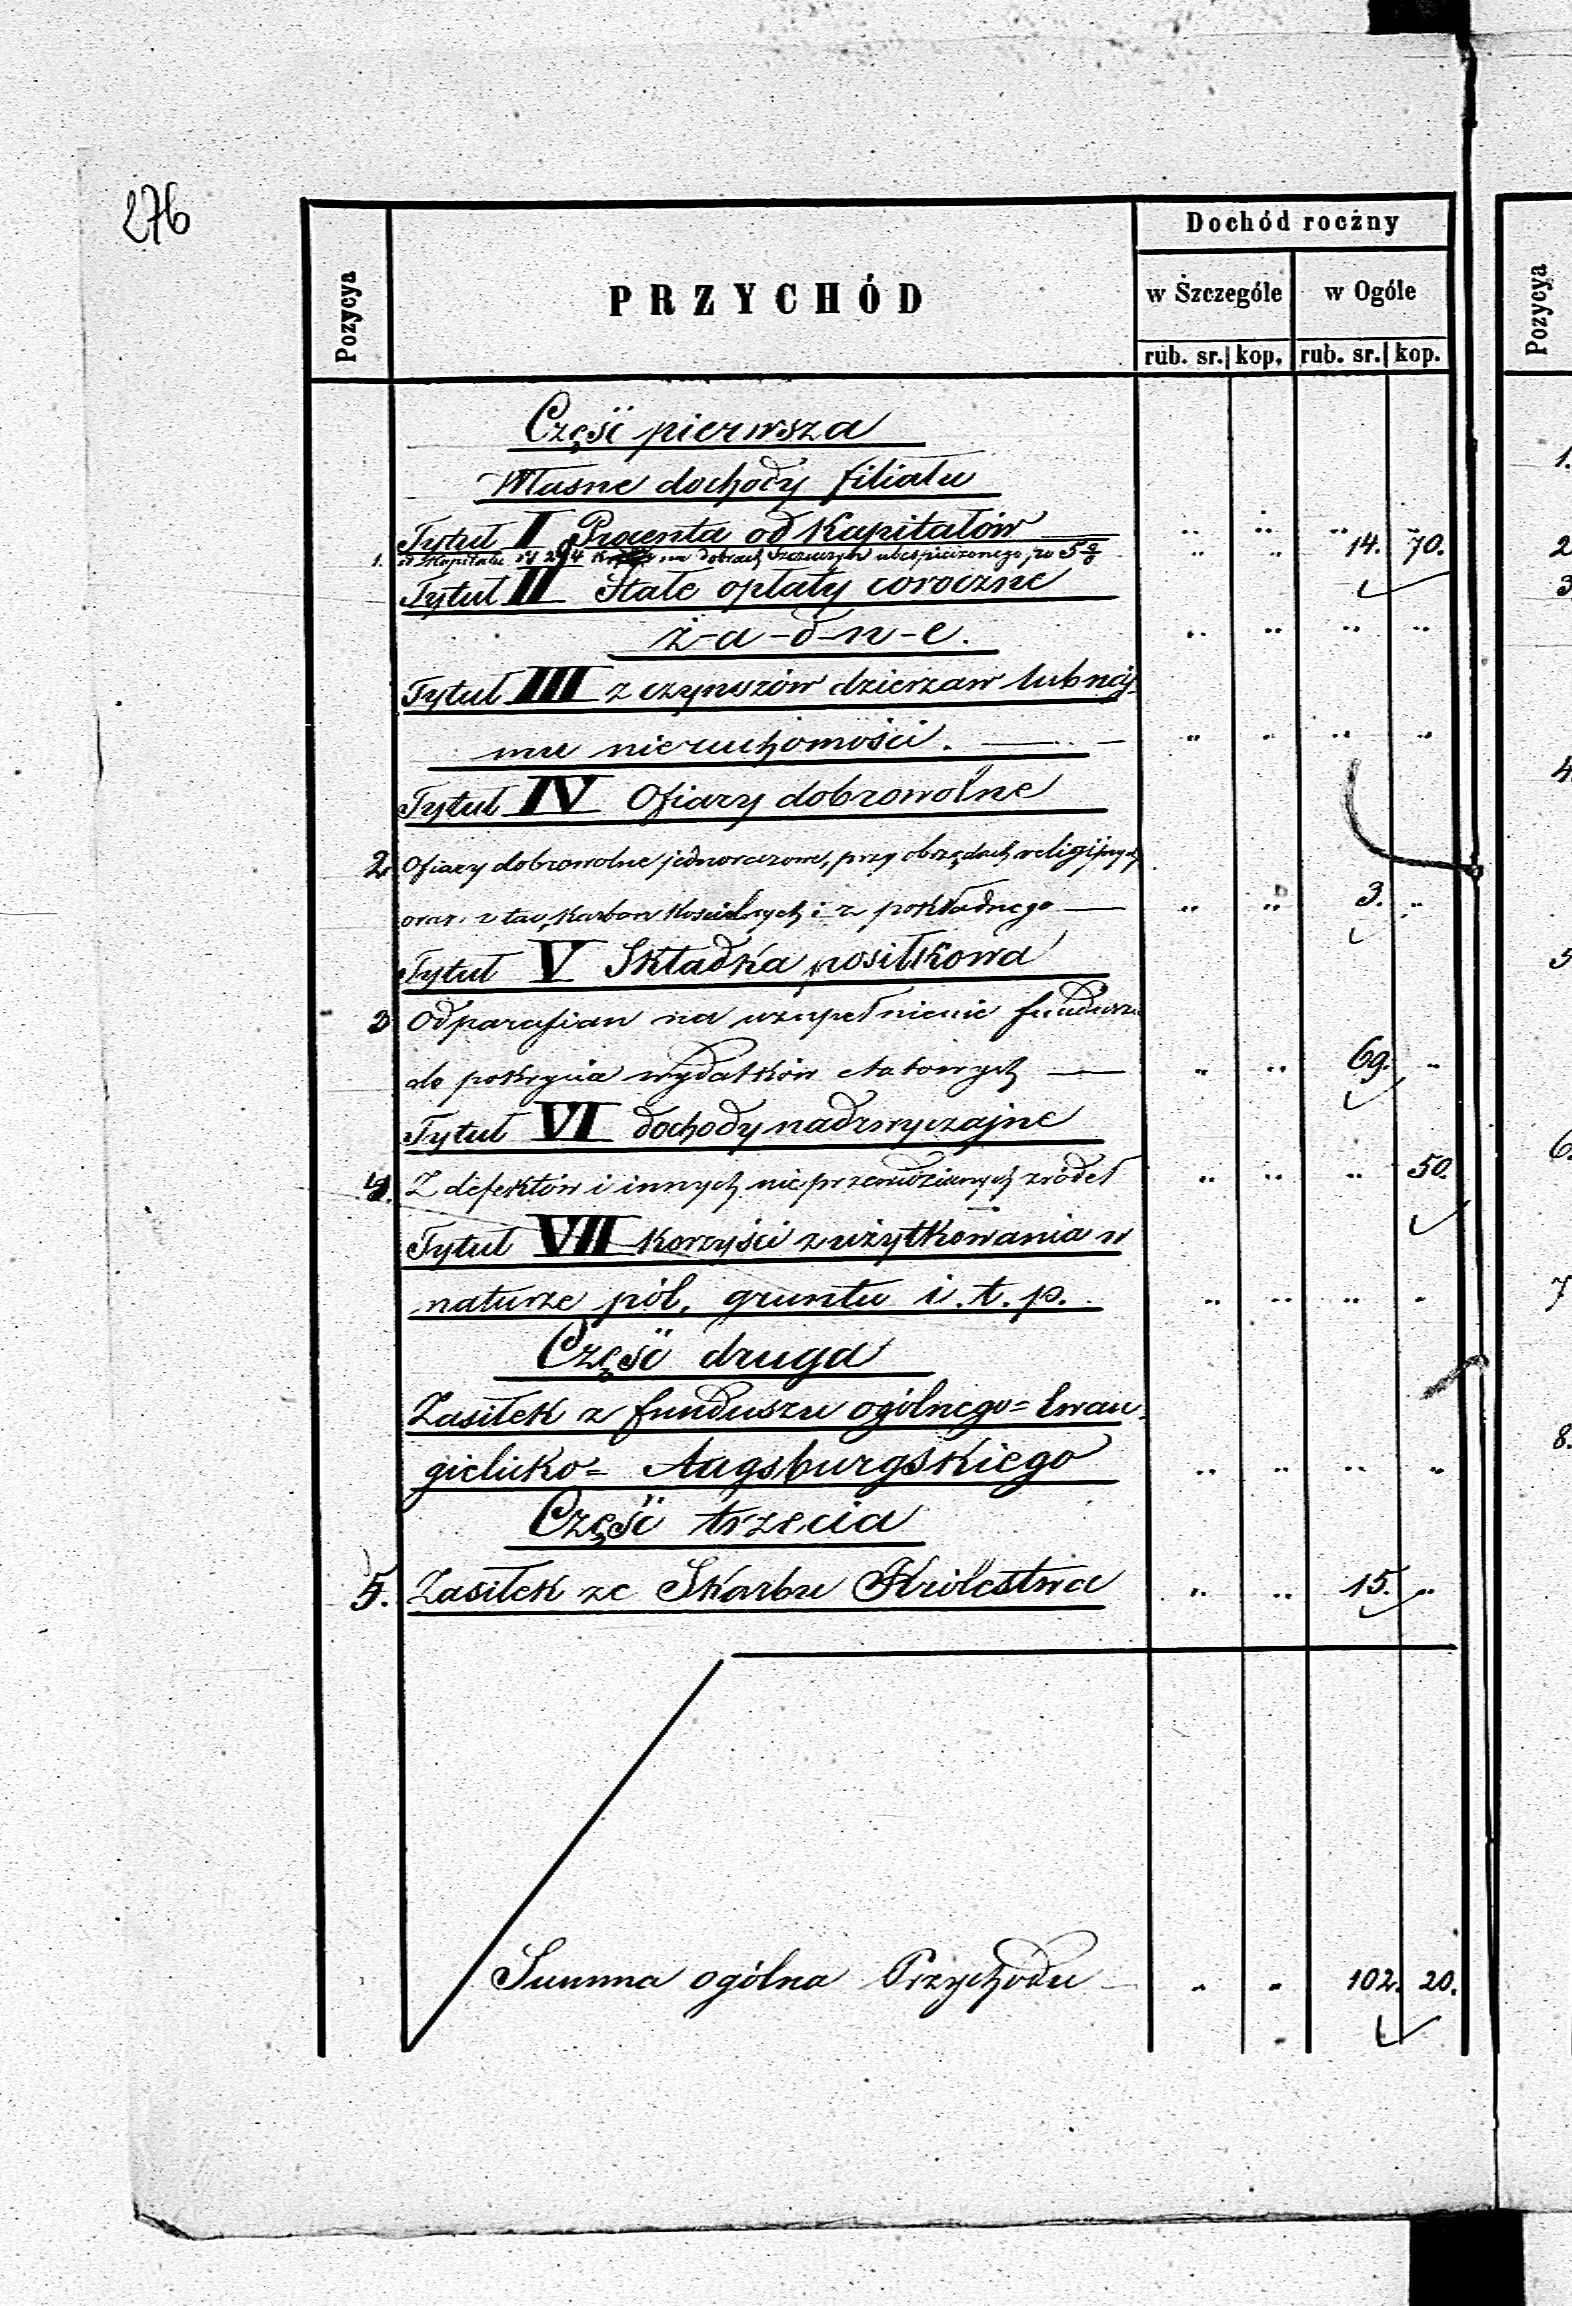 276
Dochód roczny
Pozycya
PRZYCHÓD
w Szczególe w Ogóle
rub. sr. kop. rub. sr. kop.
Pozycya
Część pierwsza
Własne dochody filiału
Tytuł I Procenta od Kapitałów " " " "
1. od Kapitału na dobrach ubespieczonego, po 5% " " 14. 70.
Tytuł II Stałe opłaty coroczne
ż-a-d-n-e. " " " "
Tytuł III z czynszów dzierzaw lub naj-
mu nieruchomości. " " " "
Tytuł IV Ofiary dobrowolne
2. Ofiary dobrowolne jednorazowe, przy obrzędach religijnych
oraz z tac, karbon Kościelnych i z pokładnego " " 3. "
Tytuł V Składka posiłkowa
3 Od parafian na uzupełnienie funduszu
do pokrycia wydatków etatowych " " 69. "
Tytuł VI dochody nadzwyczajne
4. Z defektów i innych nieprzewidzianych źródeł " " " 50.
Tytuł VII Korzyści z użytkowania w
naturze pól, gruntu i. t. p. " " " "
Część druga
Zasiłek z funduszu ogólnego=Ewan-
gielicko=Augsburgskiego " " " "
Część trzecia
5. Zasiłek ze Skarbu Królestwa " " 15. "
Summa ogólna Przychodu " " 102. 20.
1.
2
3
4.
5
6.
7
8.